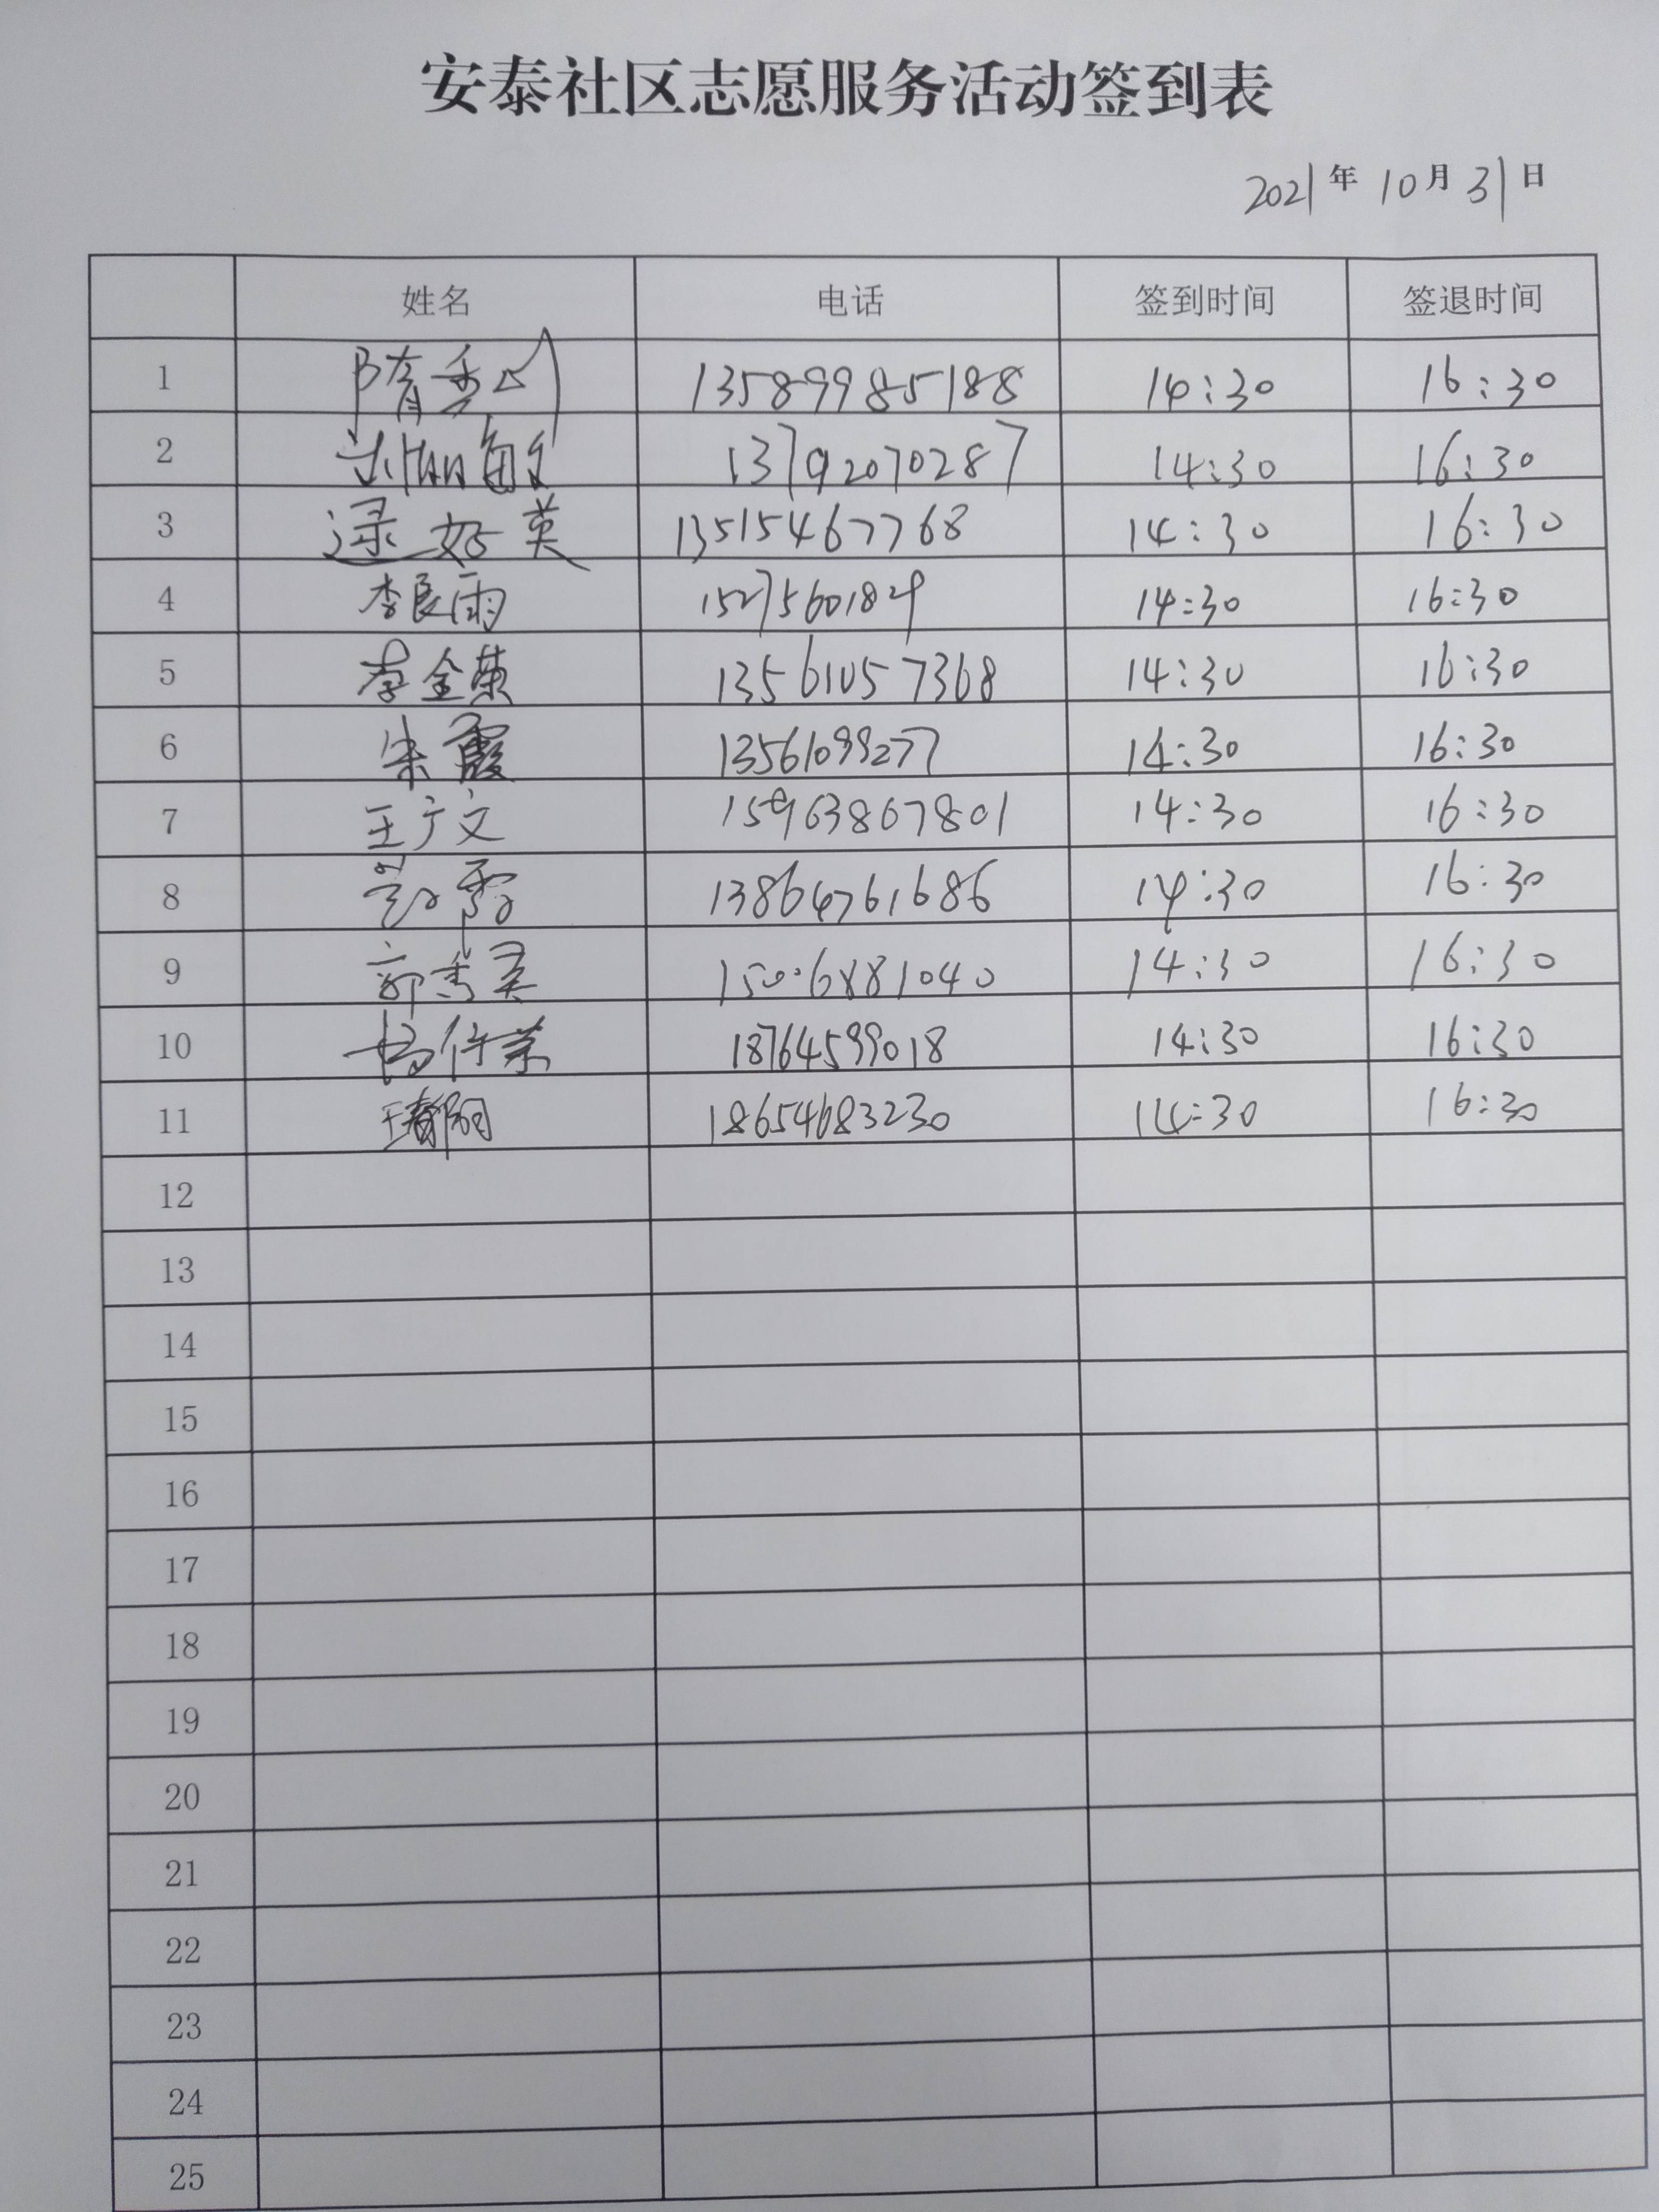 安泰社区志愿服务活动签到表
2021年10月31日
姓名 电话 签到时间 签退时间
1 隋秀 13589985188 14:30 16:30
2 敏 13792070287 14:30 16:30
3 逯好英 13515467768 14:30 16:30
4 李良雨 15275601829 14:30 16:30
5 李金荣 13561057368 14:30 16:30
6 朱霞 13561099277 14:30 16:30
7 王广文 15963867801 14:30 16:30
8 13864761686 14:30 16:30
9 郭秀英 15006881040 14:30 16:30
10 杨 18764599018 14:30 16:30
11 王 18654683230 14:30 16:30
12
13
14
15
16
17
18
19
20
21
22
23
24
25